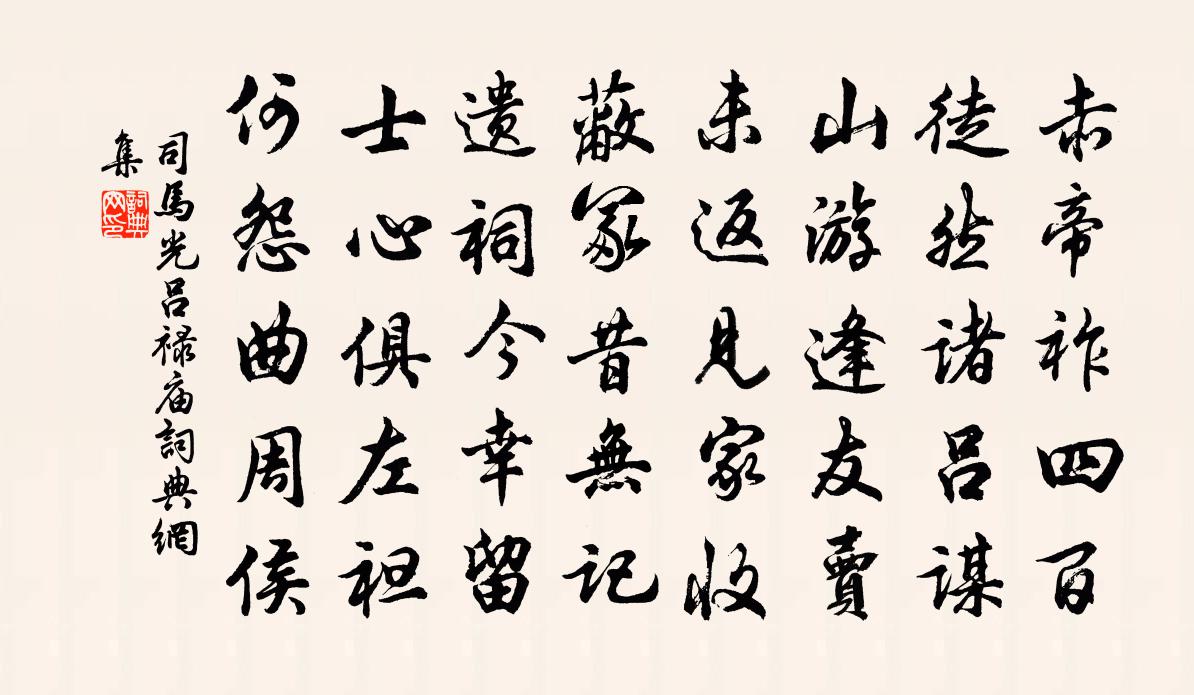 赤帝祚四百
徒然诸吕谋
山游逢友賣
未返見家收
蔽冢昔無记
遗祠今幸留
士心俱左袒
何怨曲周侯
司馬光吕禄庙詞典網
集
詞典
网印